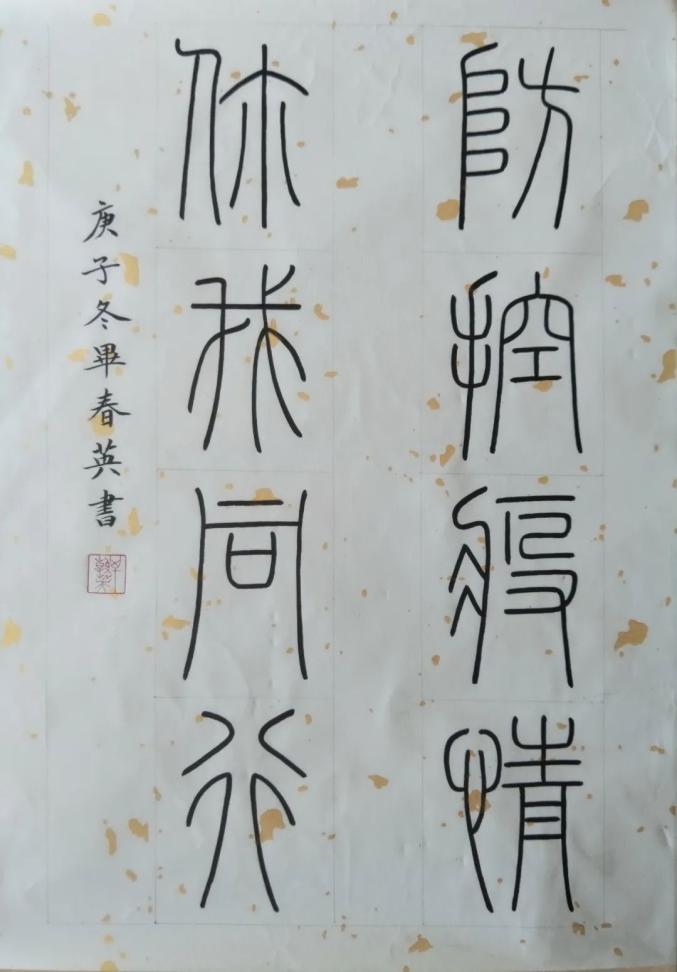 防控疫情
你我同行
庚子冬畢春英書